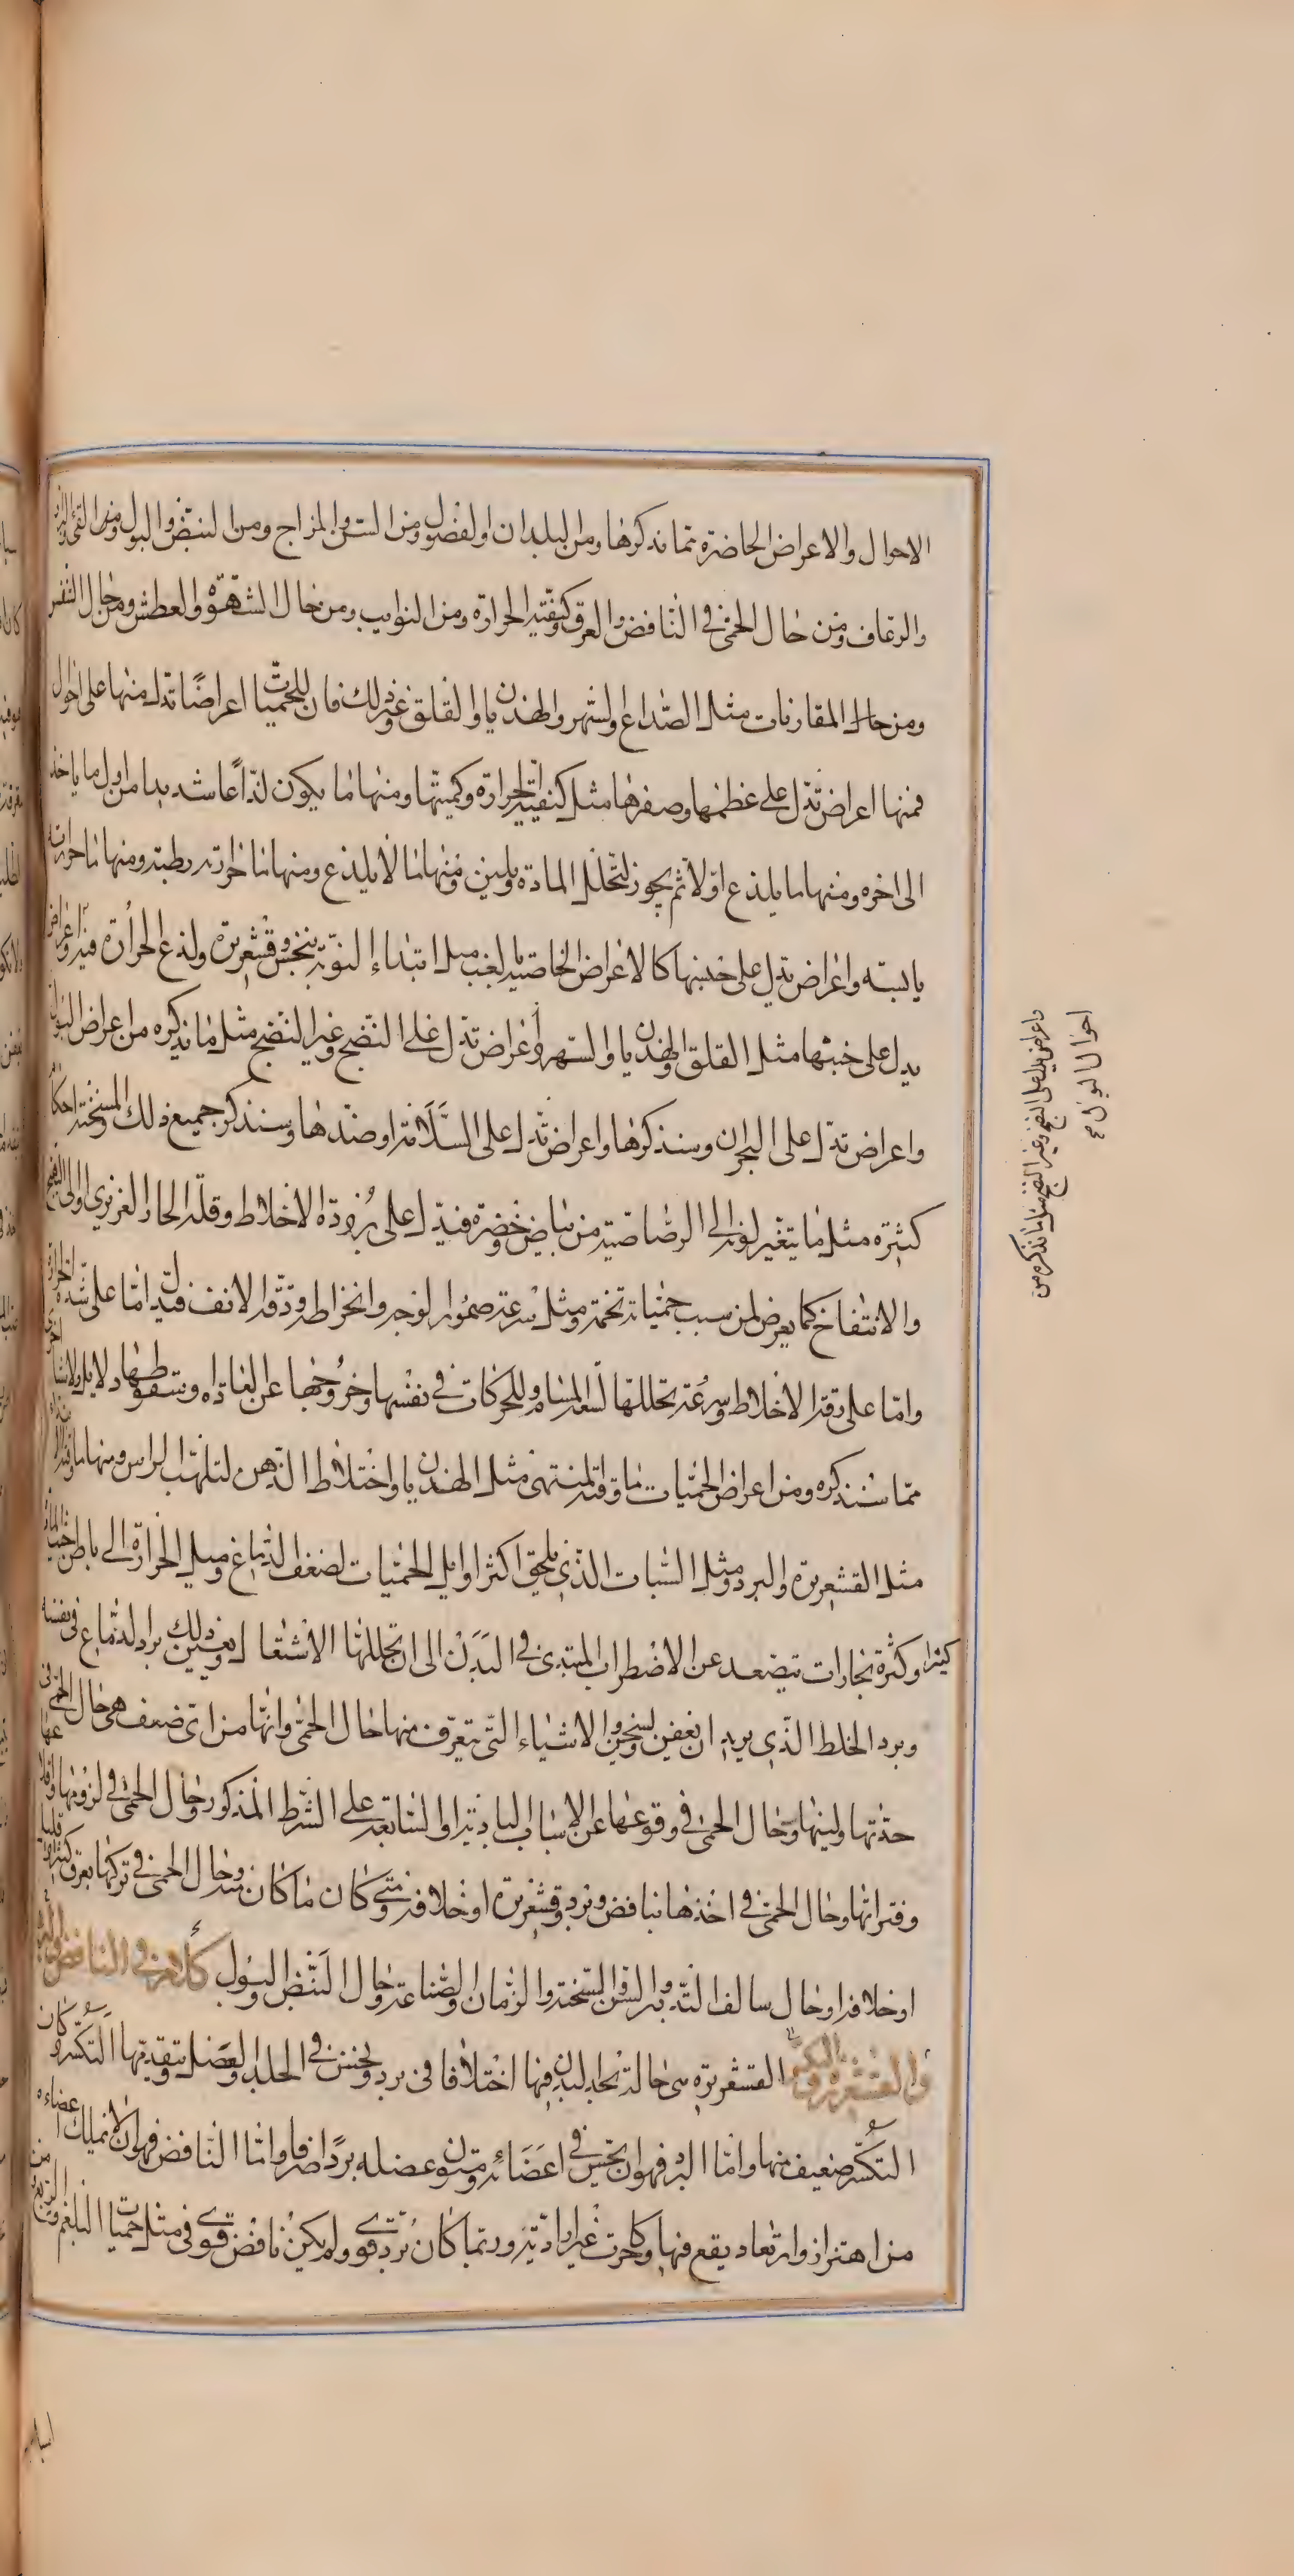 الاحوال والاعراض الحاضرة مما نذكرها ومن البلدان والفصول ومن السن والمزاج ومن النبض والبول ومن القئ والبراز
والرعاف ومن حال الحمى في النافض والعرق وكيفية الحرارة ومن النوايب ومن حال الشهوة والعطش ومن حال التنفس
ومن حال المقارنات مثل الصداع والسهر والهذيان والقلق وغير ذلك فان للحميات اعراضا تدل منها على احوال
فمنها اعراض تدل على عظمها وصغرها مثل كيفية الحرارة وكميتها ومنها ما يكون لذاعا شديدا من اول ما ياخذ
الى اخره ومنها ما يلذع اولا ثم يخور لتحلل المادة ويلين ومنها ما لا يلذع ومنها ما حرارته رطبة ومنها ما حرارته
يابسة واعراض تدل على جنسها كالاعراض الخاصية بالغب مثل ابتداء النوبة بنخس وقشعريرة ولذع الحرارة فيه واعراض
يدل على خبثها مثل القلق والهذيان والسهر واعراض تدل على النضج وغير النضج مثل ما نذكره من اعراض البول
واعراض تدل على البحران وسنذكرها واعراض تدل على السلامة او ضدها وسنذكر جميع ذلك وللسحنة احكام
كثيرة مثل ما يتغير لونه الى الرصاصية من بياض وخضرة فيدل على برودة الاخلاط وقلة الحار الغريزي او الى التهيج
والانتفاخ كما يعرض لمن سبب حمياته تخمة ومثل سرعة ضمور الوجه وانخراطه ودقة الانف فيدل اما على شدة الحرارة
واما على رقة الاخلاط وسرعة تحللها لسعة المسام وللحركات في نفسها وخروجها عن العادة وسقوطها دلايل ولاشيا اخرى
مما سنذكره ومن اعراض الحميات ما وقته المنتهى مثل الهذيان واختلاط الذهن لتلهب الراس ومنها ما وقته الابتداء
مثل القشعريرة والبرد ومثل السبات الذي يلحق اكثر اوايل الحميات لضعف الدماغ وميل الحرارة الى باطن حيث المادة
كثيرا وكثرة بخارات تتصعد عن الاضطراب المبتدئ في البدن الى ان تحللها الاشتعال ويعين ذلك برد الدماغ في نفسه
وبرد الخلط الذي يريد ان يعفن ويسخن والاشياء التي يتعرف منها حال الحمى وانها من اي ضعف هي حال الحمى في
حدتها ولينها وحال الحمى في وقوعها عن الاسباب البادية او السابقة على الشرط المذكور وحال الحمى في لزومها واقلاعها
وفتراتها وحال الحمى في اخذها بنافض وبرد وقشعريرة او خلافه ومتى كان ما كان منه وحال الحمى في تركها بعرق كثير او قليل
او خلافه او حال سالف التدبير والسن والسحنة والزمان والصناعة وحال النبض والبول كلام في النافض والبرد
والقشعريرة والتكسر القشعريرة هي حالة يجد البدن فيها اختلافا في برد ونخس في الجلد والعضل ويتقدمها التكسر وكان
التكسر ضعيف منها واما البرد فهو ان يحس في اعضائه ومتون عضله بردا صرفا واما النافض فهو ان لا يملك اعضاءه
من اهتزاز وارتعاد يقع فيها وحركات غير ارادية وربما كان برد قوي ولم يكن نافض قوي في مثل حميات البلغم ومن الربع
واعراض يدل على النضج وغير النضج مثل ما نذكره من
احوال البول صح